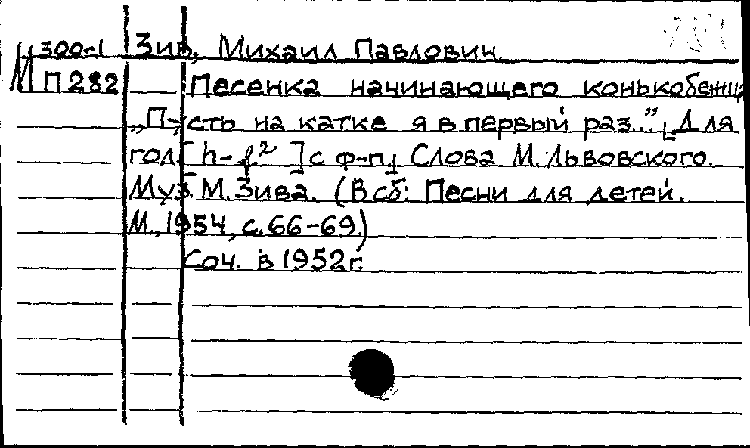 М 300-1 Зив, Михаил Павлович
П 282 Песенка начинающего конькобежца
„Пусть на катке я в первый раз..." [Для
гол. [h-f²] с ф-п.] Слова М. Львовского.
Муз. М. Зива. (В сб: Песни для детей.
М., 1954, с. 66-69.)
Соч. в 1952 г.